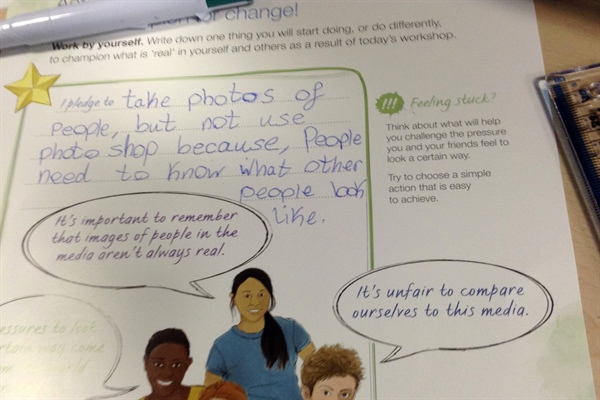 for change!
Work by yourself. Write down one thing you will start doing, or do differently,
to champion what is 'real' in yourself and others as a result of today's workshop.
I pledge to take photos of
People, but not use
photo shop because, People
need to know what other
people look
like.
!!! Feeling stuck?
Think about what will help
you challenge the pressure
you and your friends feel to
look a certain way.
Try to choose a simple
action that is easy
to achieve.
It's important to remember
that images of people in the
media aren't always real.
It's unfair to compare
ourselves to this media.
to look
come